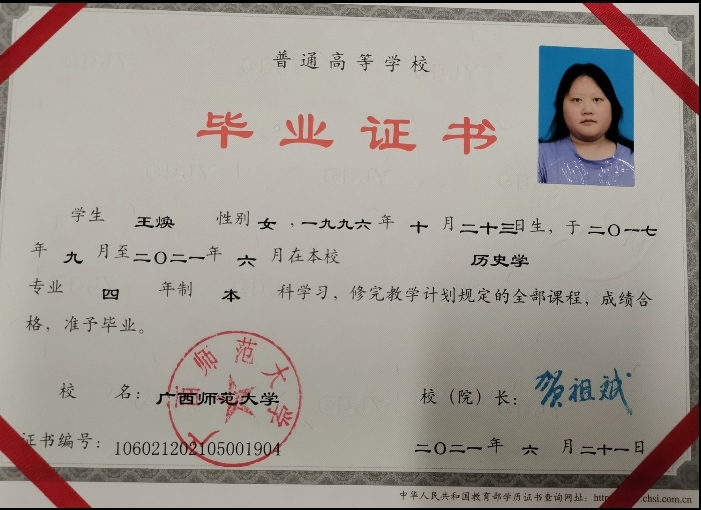 普通高等学校
毕业证书
学生 王焕 性别 女，一九九六年 十 月二十三日生，于二〇一七
年 九 月至二〇二一年 六 月在本校 历史学
专业 四 年制 本 科学习，修完教学计划规定的全部课程，成绩合
格，准予毕业。
校 名：广西师范大学 校（院）长：贺祖斌
广西师范大学
证书编号：106021202105001904 二〇二一年 六 月二十一日
中华人民共和国教育部学历证书查询网址：http chsi.com.cn